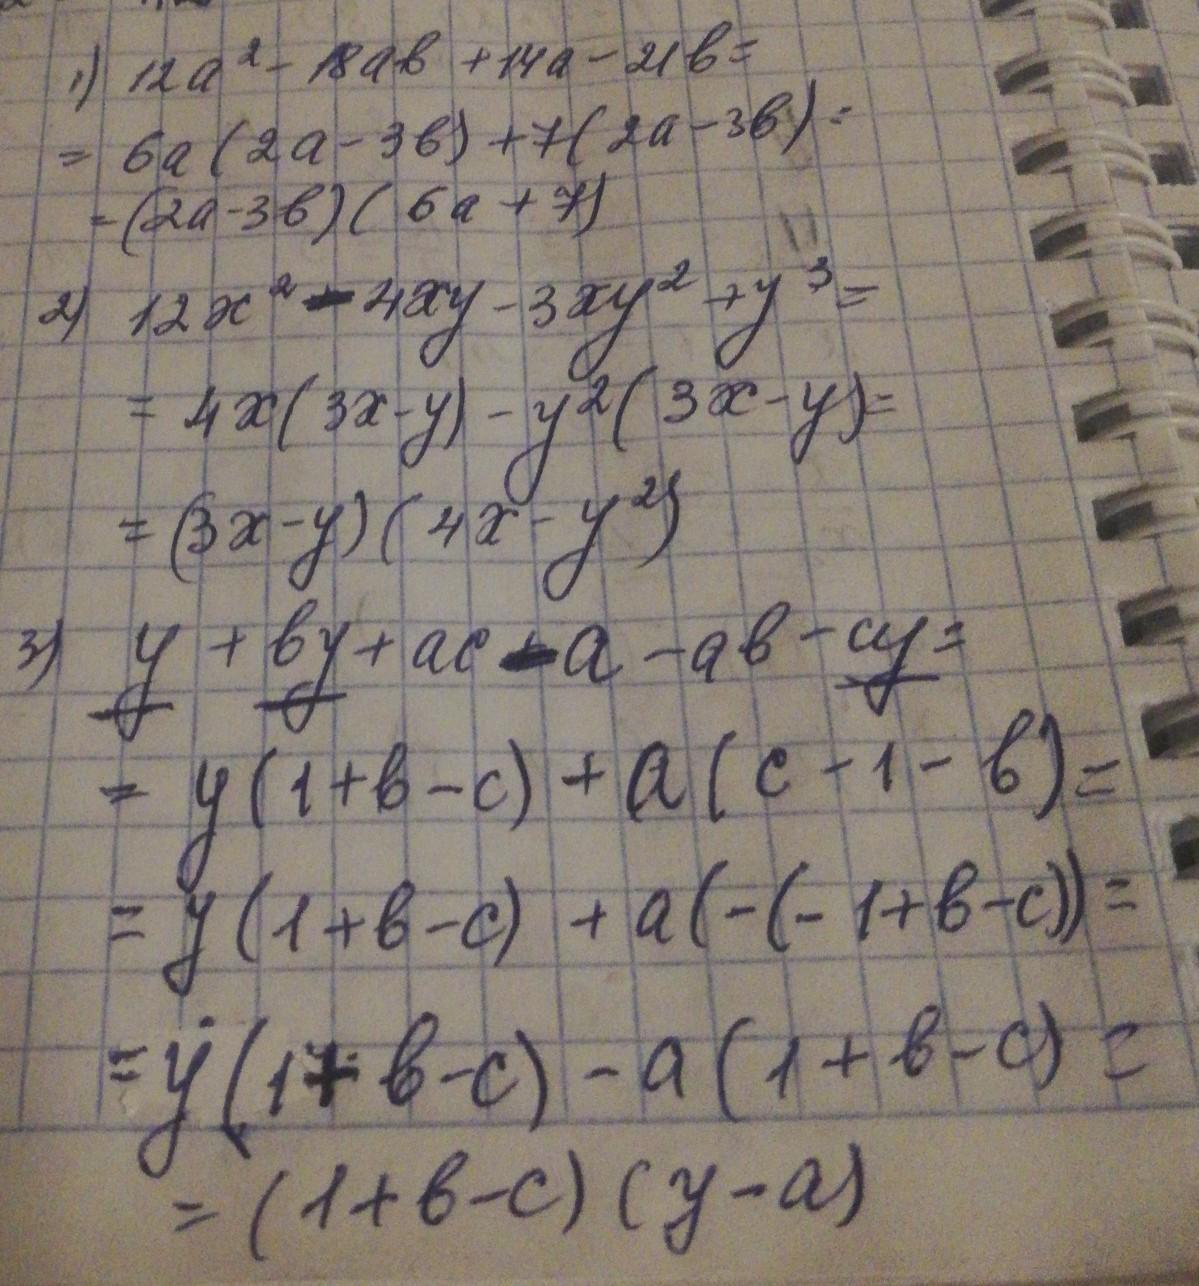 1) 12a² - 18ab + 14a - 21b =
= 6a(2a - 3b) + 7(2a - 3b) =
= (2a - 3b)(6a + 7)
2) 12x² - 4xy - 3xy² + y³ =
= 4x(3x - y) - y²(3x - y) =
= (3x - y)(4x - y²)
3) y + by + ac - a - ab - cy =
= y(1 + b - c) + a(c - 1 - b) =
= y(1 + b - c) + a(-(-1 + b - c)) =
= y(1 + b - c) - a(1 + b - c) =
= (1 + b - c)(y - a)